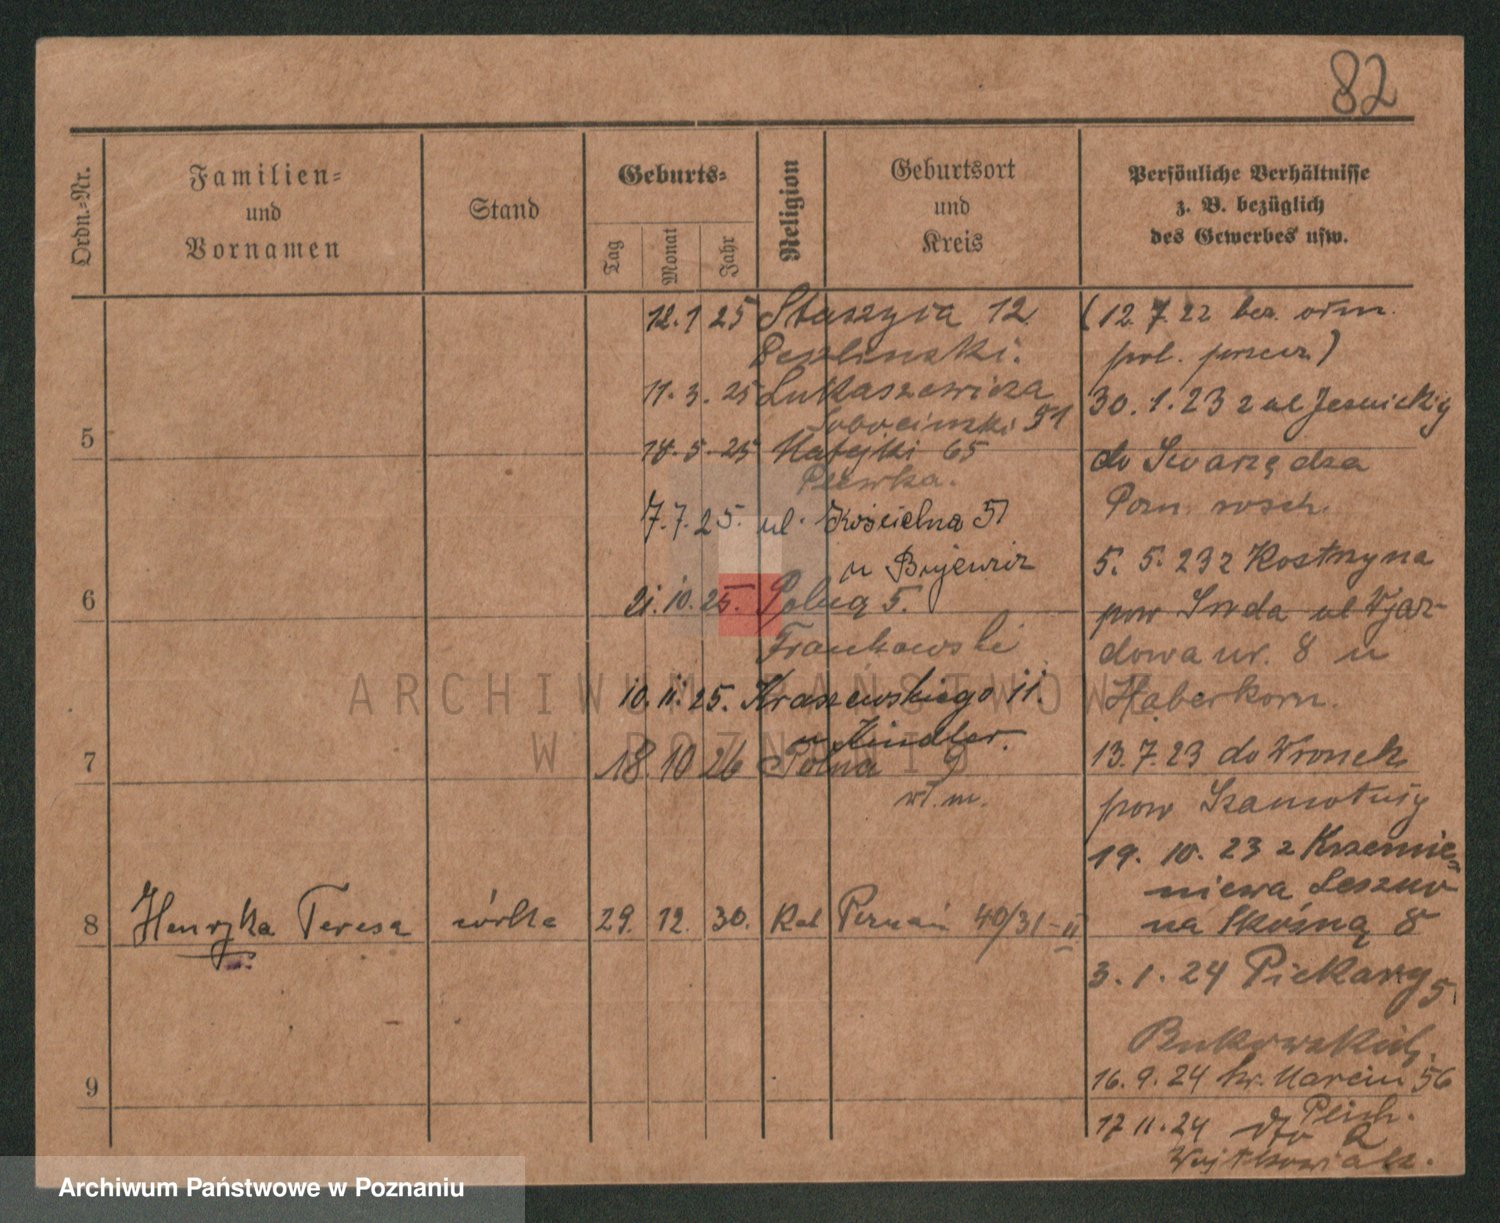 82
Ordn.-Nr.
Familien-
und
Vornamen
Stand
Geburts-
Tag
Monat
Jahr
Religion
Geburtsort
und
Kreis
Persönliche Verhältnisse
z. B. bezüglich
des Gewerbes usw.
12. 1 25 Staszyca 12
11. 3. 25 Łukaszewicza
51
5
18. 5. 25 Matejki 65
7. 7. 25. ul. Kościelna 51
u
6
21. 10. 25. Polną 5.
Frankowski
10. 11. 25. Kraszewskiego 11.
u Kindler.
7
18. 10 26 Polna 9
wł. m.
8 Henryka Teresa córka 29. 12. 30. Kat Poznań 40/31-II
9
(12. 7. 22
30. 1. 23 z ul Jesuickiej
do Swarzędza
5. 5. 23 z Kostrzyna
pow Środa ul
dowa nr. 8 u
Haberkorn.
13. 7. 23 do Wronek
pow Szamotuły
19. 10. 23 z Krzemie-
niewa Leszno
na Skośną 8
3. 1. 24 Piekary 5
16. 9. 24 Św. Marcin 56
17 11. 24 dto
Wojtkowiak.
ARCHIWUM PAŃSTWOWE
W POZNANIU
Archiwum Państwowe w Poznaniu